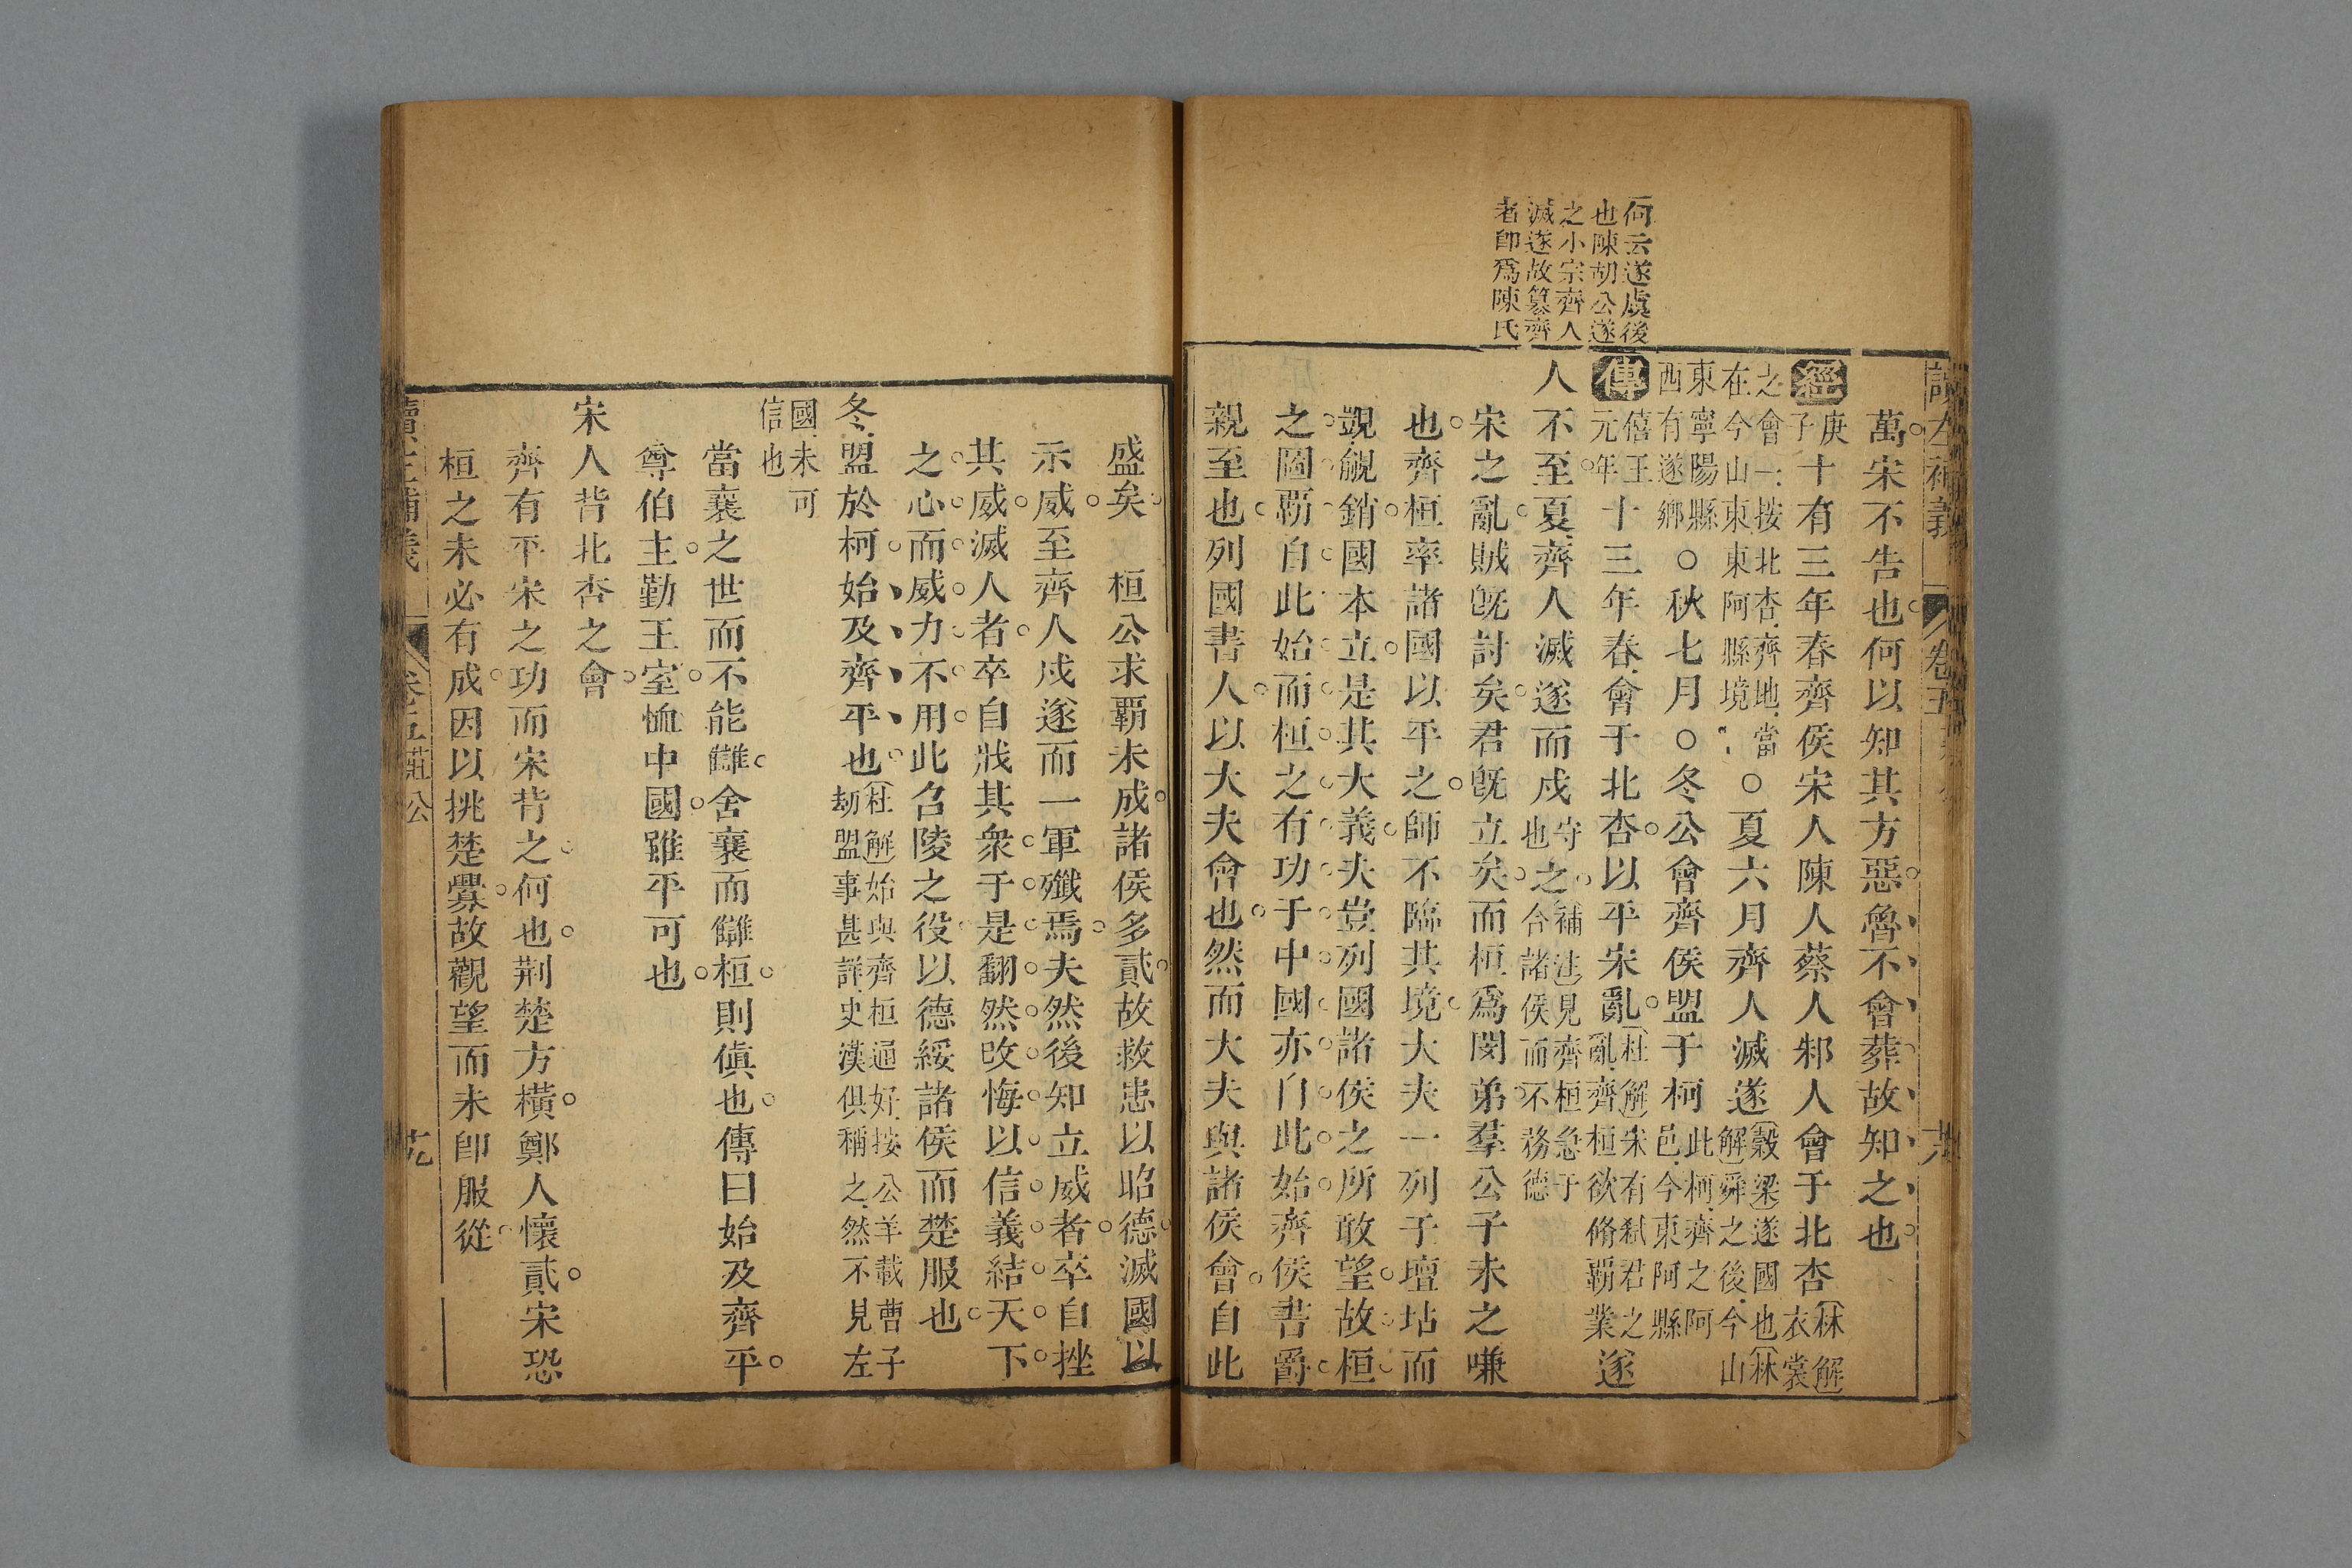 何云遂虞後
也陳胡公遂
之小宗齊人
滅遂故篡齊
者卽爲陳氏
讀左補義 卷五 莊公
萬宋不告也何以知其方惡魯不會葬故知之也
經庚子十有三年春齊侯宋人陳人蔡人邾人會于北杏林解衣裳
之會一按北杏齊地當在今山東東阿縣境○夏六月齊人滅遂穀梁遂國也林解舜之後今山
東寧陽縣西有遂鄉○秋七月○冬公會齊侯盟于柯此柯齊之阿邑今東阿縣
傳僖王元年十三年春會于北杏以平宋亂杜解宋有弑君之亂齊桓欲脩覇業遂
人不至夏齊人滅遂而戍守也之補注見齊桓急于合諸侯而不務德
宋之亂賊旣討矣君旣立矣而桓爲閔弟羣公子未之嗛
也齊桓率諸國以平之師不臨其境大夫一列于壇坫而
覬覦銷國本立是其大義夫豈列國諸侯之所敢望故桓
之圖覇自此始而桓之有功于中國亦自此始齊侯書爵
親至也列國書人以大夫會也然而大夫與諸侯會自此
盛矣 桓公求覇未成諸侯多貳故救患以昭德滅國以
示威至齊人戍遂而一軍殲焉夫然後知立威者卒自挫
其威滅人者卒自戕其衆于是翻然改悔以信義結天下
之心而威力不用此召陵之役以德綏諸侯而楚服也
冬盟於柯始及齊平也杜解始與齊桓通好按公羊載曹子劫盟事甚詳史漢俱稱之然不見左
國未可信也
當襄之世而不能讎舍襄而讎桓則傎也傳曰始及齊平
尊伯主勤王室恤中國雖平可也
宋人背北杏之會
齊有平宋之功而宋背之何也荆楚方橫鄭人懷貳宋恐
桓之未必有成因以挑楚釁故觀望而未卽服從
讀左補義 卷五 莊公